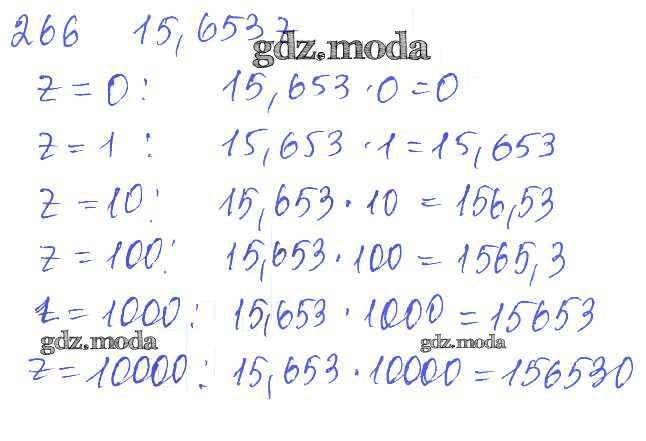 266 15,653 z
gdz.moda
z = 0: 15,653 · 0 = 0
z = 1: 15,653 · 1 = 15,653
z = 10: 15,653 · 10 = 156,53
z = 100: 15,653 · 100 = 1565,3
z = 1000: 15,653 · 1000 = 15653
gdz.moda gdz.moda
z = 10000: 15,653 · 10000 = 156530